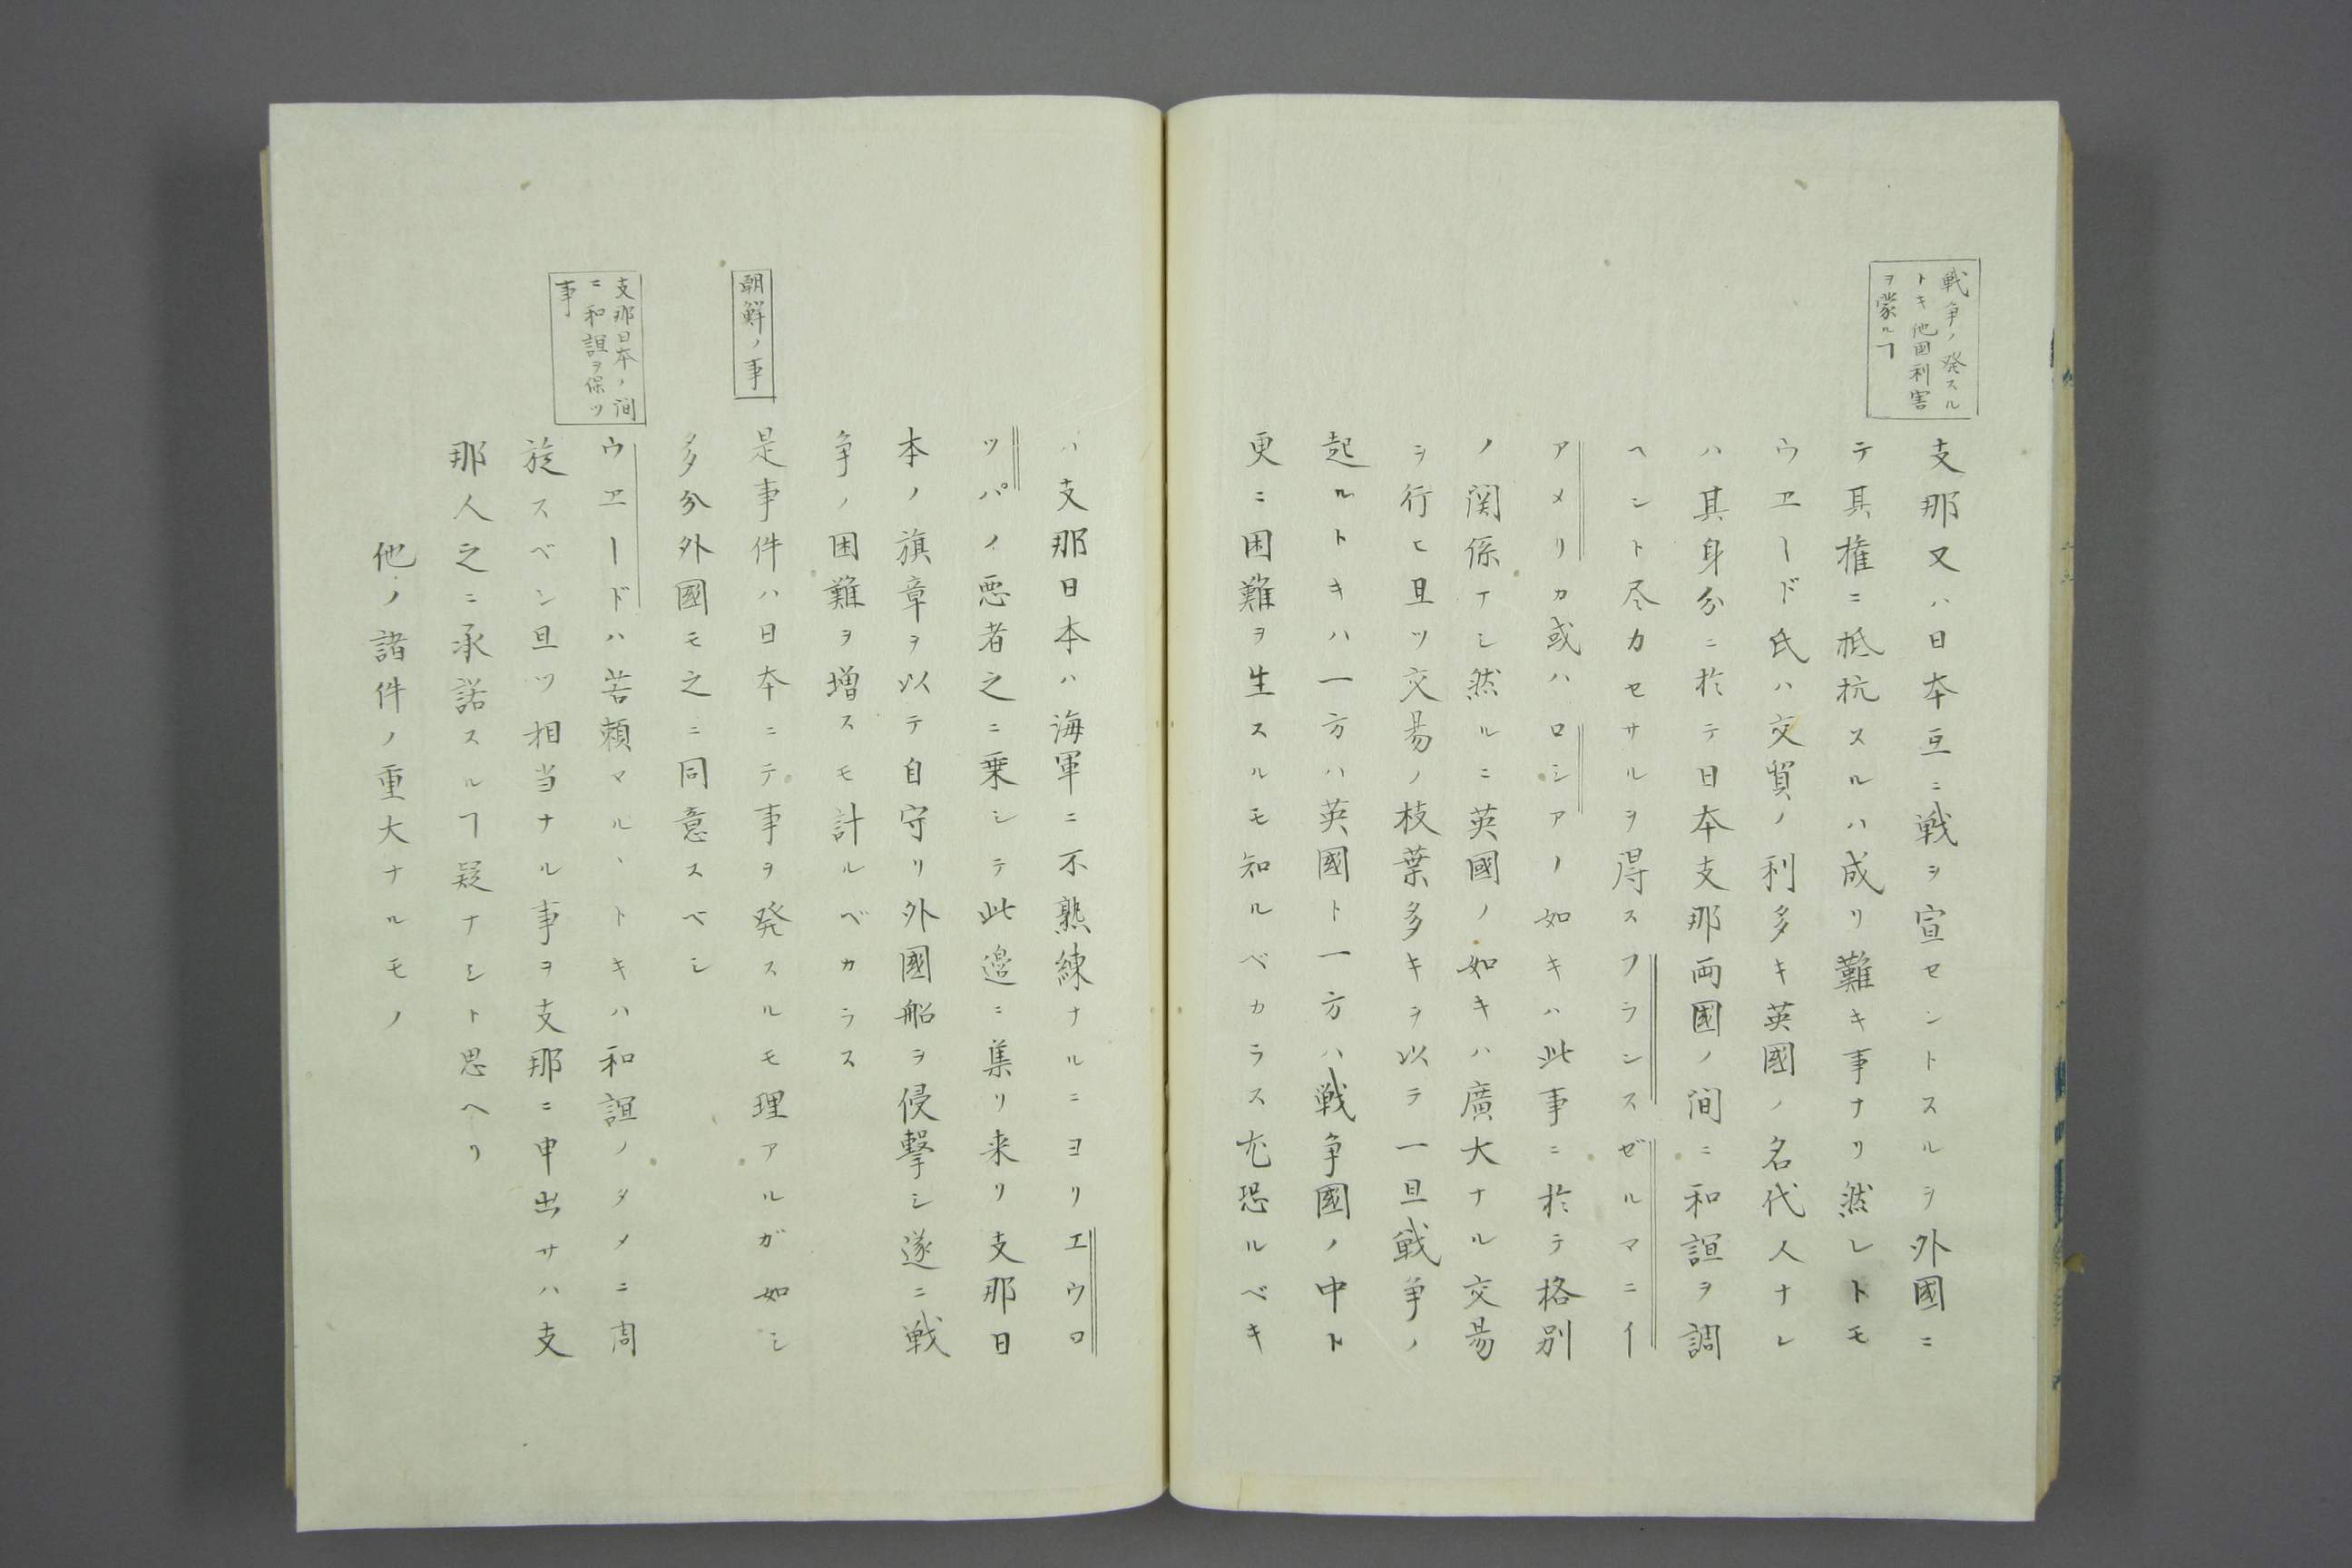 戦争ノ発スル
トキ他国利害
ヲ蒙ルヿ
支那又ハ日本互ニ戦ヲ宣セントスルヲ外國ニ
テ其権ニ抵抗スルハ成リ難キ事ナリ然レトモ
ウエード氏ハ交貿ノ利多キ英國ノ名代人ナレ
ハ其身分ニ於テ日本支那両國ノ間ニ和誼ヲ調
ヘント尽力セサルヲ得スフランスゼルマニー
アメリカ或ハロシアノ如キハ此事ニ於テ格別
ノ関係ナシ然ルニ英國ノ如キハ廣大ナル交易
ヲ行ヒ且ツ交易ノ枝葉多キヲ以テ一旦戦争ノ
起ルトキハ一方ハ英國ト一方ハ戦争國ノ中ト
更ニ困難ヲ生スルモ知ルベカラス尤恐ルベキ
ハ支那日本ハ海軍ニ不熟練ナルニヨリエウロ
ツパノ悪者之ニ乗シテ此邉ニ集リ来リ支那日
本ノ旗章ヲ以テ自守リ外國船ヲ侵撃シ遂ニ戦
争ノ困難ヲ増スモ計ルベカラス
朝鮮ノ事
是事件ハ日本ニテ事ヲ発スルモ理アルガ如シ
多分外國モ之ニ同意スベシ
支那日本ノ間
ニ和誼ヲ保ツ
事
ウエードハ苦頼マルヽトキハ和誼ノタメニ周
旋スベシ且ツ相当ナル事ヲ支那ニ申出サハ支
那人之ニ承諾スルヿ疑ナシト思ヘリ
他ノ諸件ノ重大ナルモノ